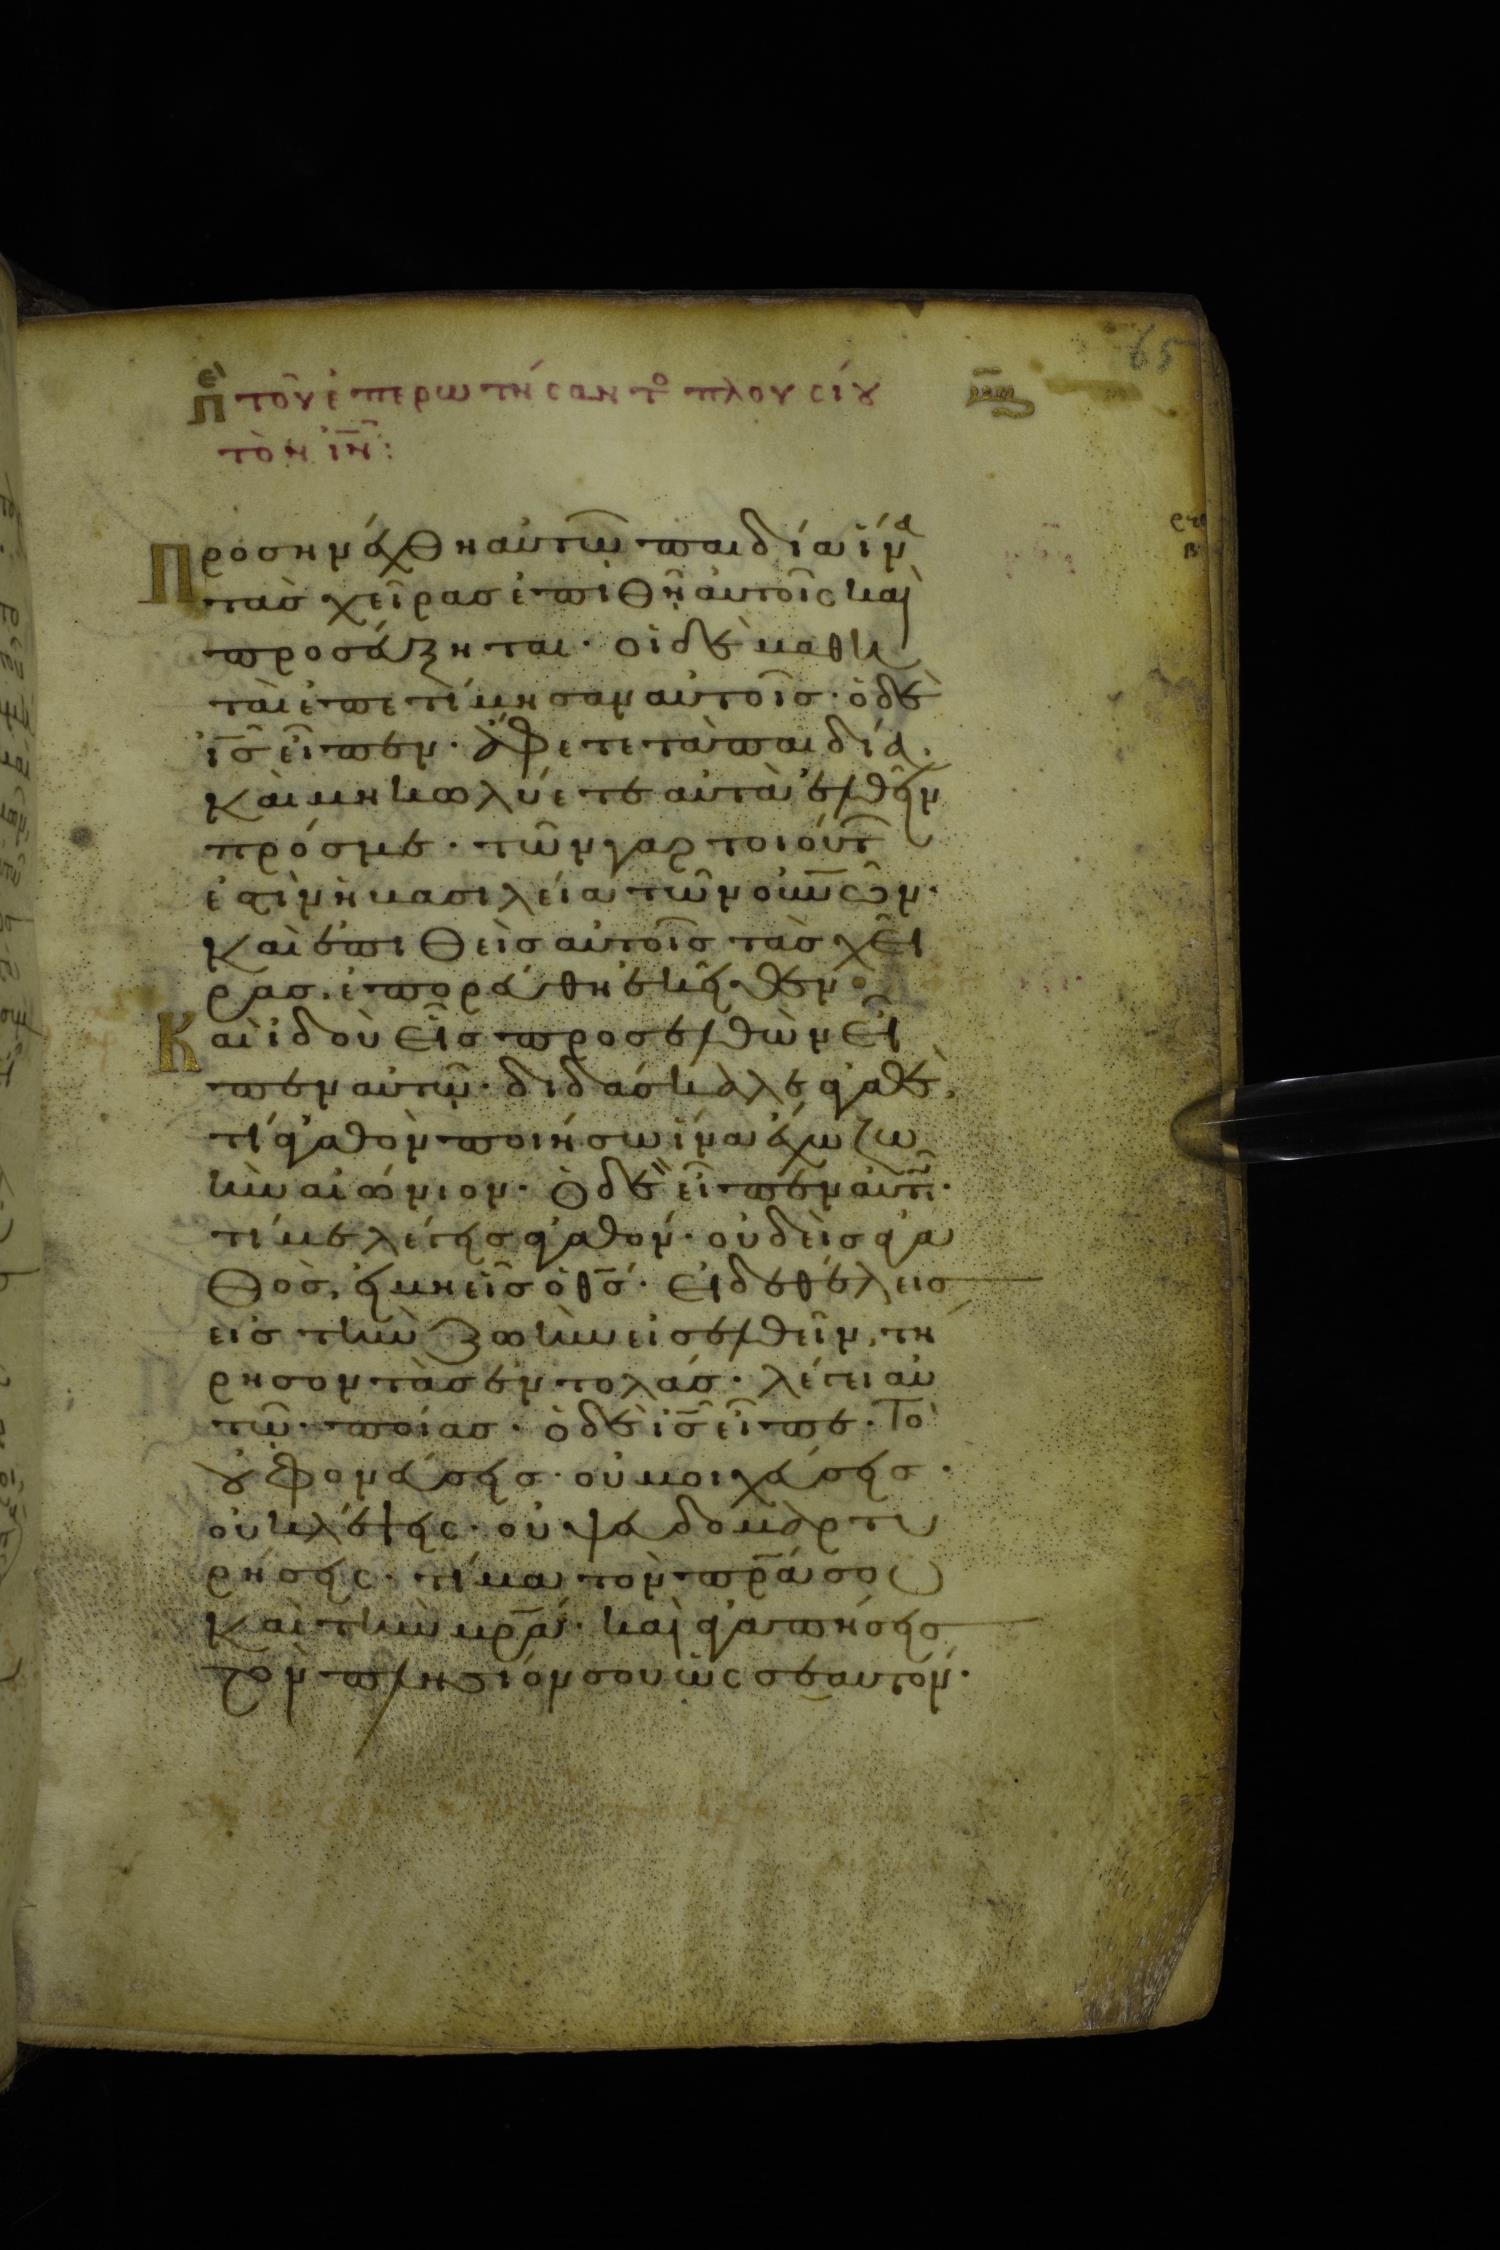 πε τοῦ ἐπερωτήσαντο πλουσίου
τὸν ἰν:
65
Προσηνέχθη αὐτῶ παιδία ἵνα
τὰς χεῖρας ἐπιθῆ αὐτοῖς καὶ
προσεύξηται· οἱ δὲ μαθη
ταὶ ἐπετίμησαν αὐτοῖς· ὁ δὲ
ις εἶπεν· ἄφετε τὰ παιδία.
καὶ μὴ κωλύετε αὐτὰ ἐλθεῖν
πρός με· τῶν γὰρ τοιούτ
ἐστὶν ἡ βασιλεία τῶν οὐνῶν·
καὶ ἐπιθεὶς αὐτοῖς τὰς χεῖ
ρας, ἐπορεύθη ἐκεῖθεν·
Καὶ ἰδοὺ εἷς προσελθὼν εἶ
πεν αὐτῶ· διδάσκαλε ἀγαθὲ,
τί ἀγαθὸν ποιήσω ἵνα ἔχω ζω
ὴν αἰώνιον· ὁ δὲ εἶπεν αὐτῶ·
τί με λέγεις ἀγαθόν· οὐδεὶς ἀγα
θὸς, εἰ μὴ εἷς ὁ θς· εἰ δὲ θέλεις
εἰς τὴν ζωὴν εἰσελθεῖν, τή
ρησον τὰς ἐντολάς· λέγει αὐ
τῶ· ποίας· ὁ δὲ ις εἶπε· Τὸ
οὐ φονεύσεις· οὐ μοιχεύσεις·
οὐ κλέψεις· οὐ ψευδομαρτυ
ρήσεις· τίμα τὸν πρα σου
καὶ τὴν μρα· καὶ ἀγαπήσεις
τὸν πλησίον σου ὡς σεαυτόν·